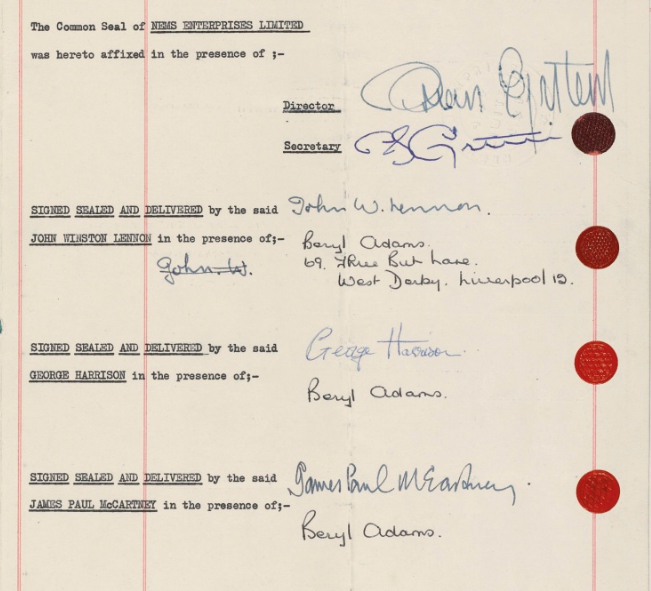 The Common Seal of NEMS ENTERPRISES LIMITED
was hereto affixed in the presence of ;-
Director Brian Epstein
Secretary
SIGNED SEALED AND DELIVERED by the said John W. Lennon.
JOHN WINSTON LENNON in the presence of;- Beryl Adams.
John. W. 69, Three Butt Lane.
West Derby. Liverpool 12.
SIGNED SEALED AND DELIVERED by the said George Harrison.
GEORGE HARRISON in the presence of;-
Beryl Adams.
SIGNED SEALED AND DELIVERED by the said James Paul McCartney.
JAMES PAUL McCARTNEY in the presence of;-
Beryl Adams.